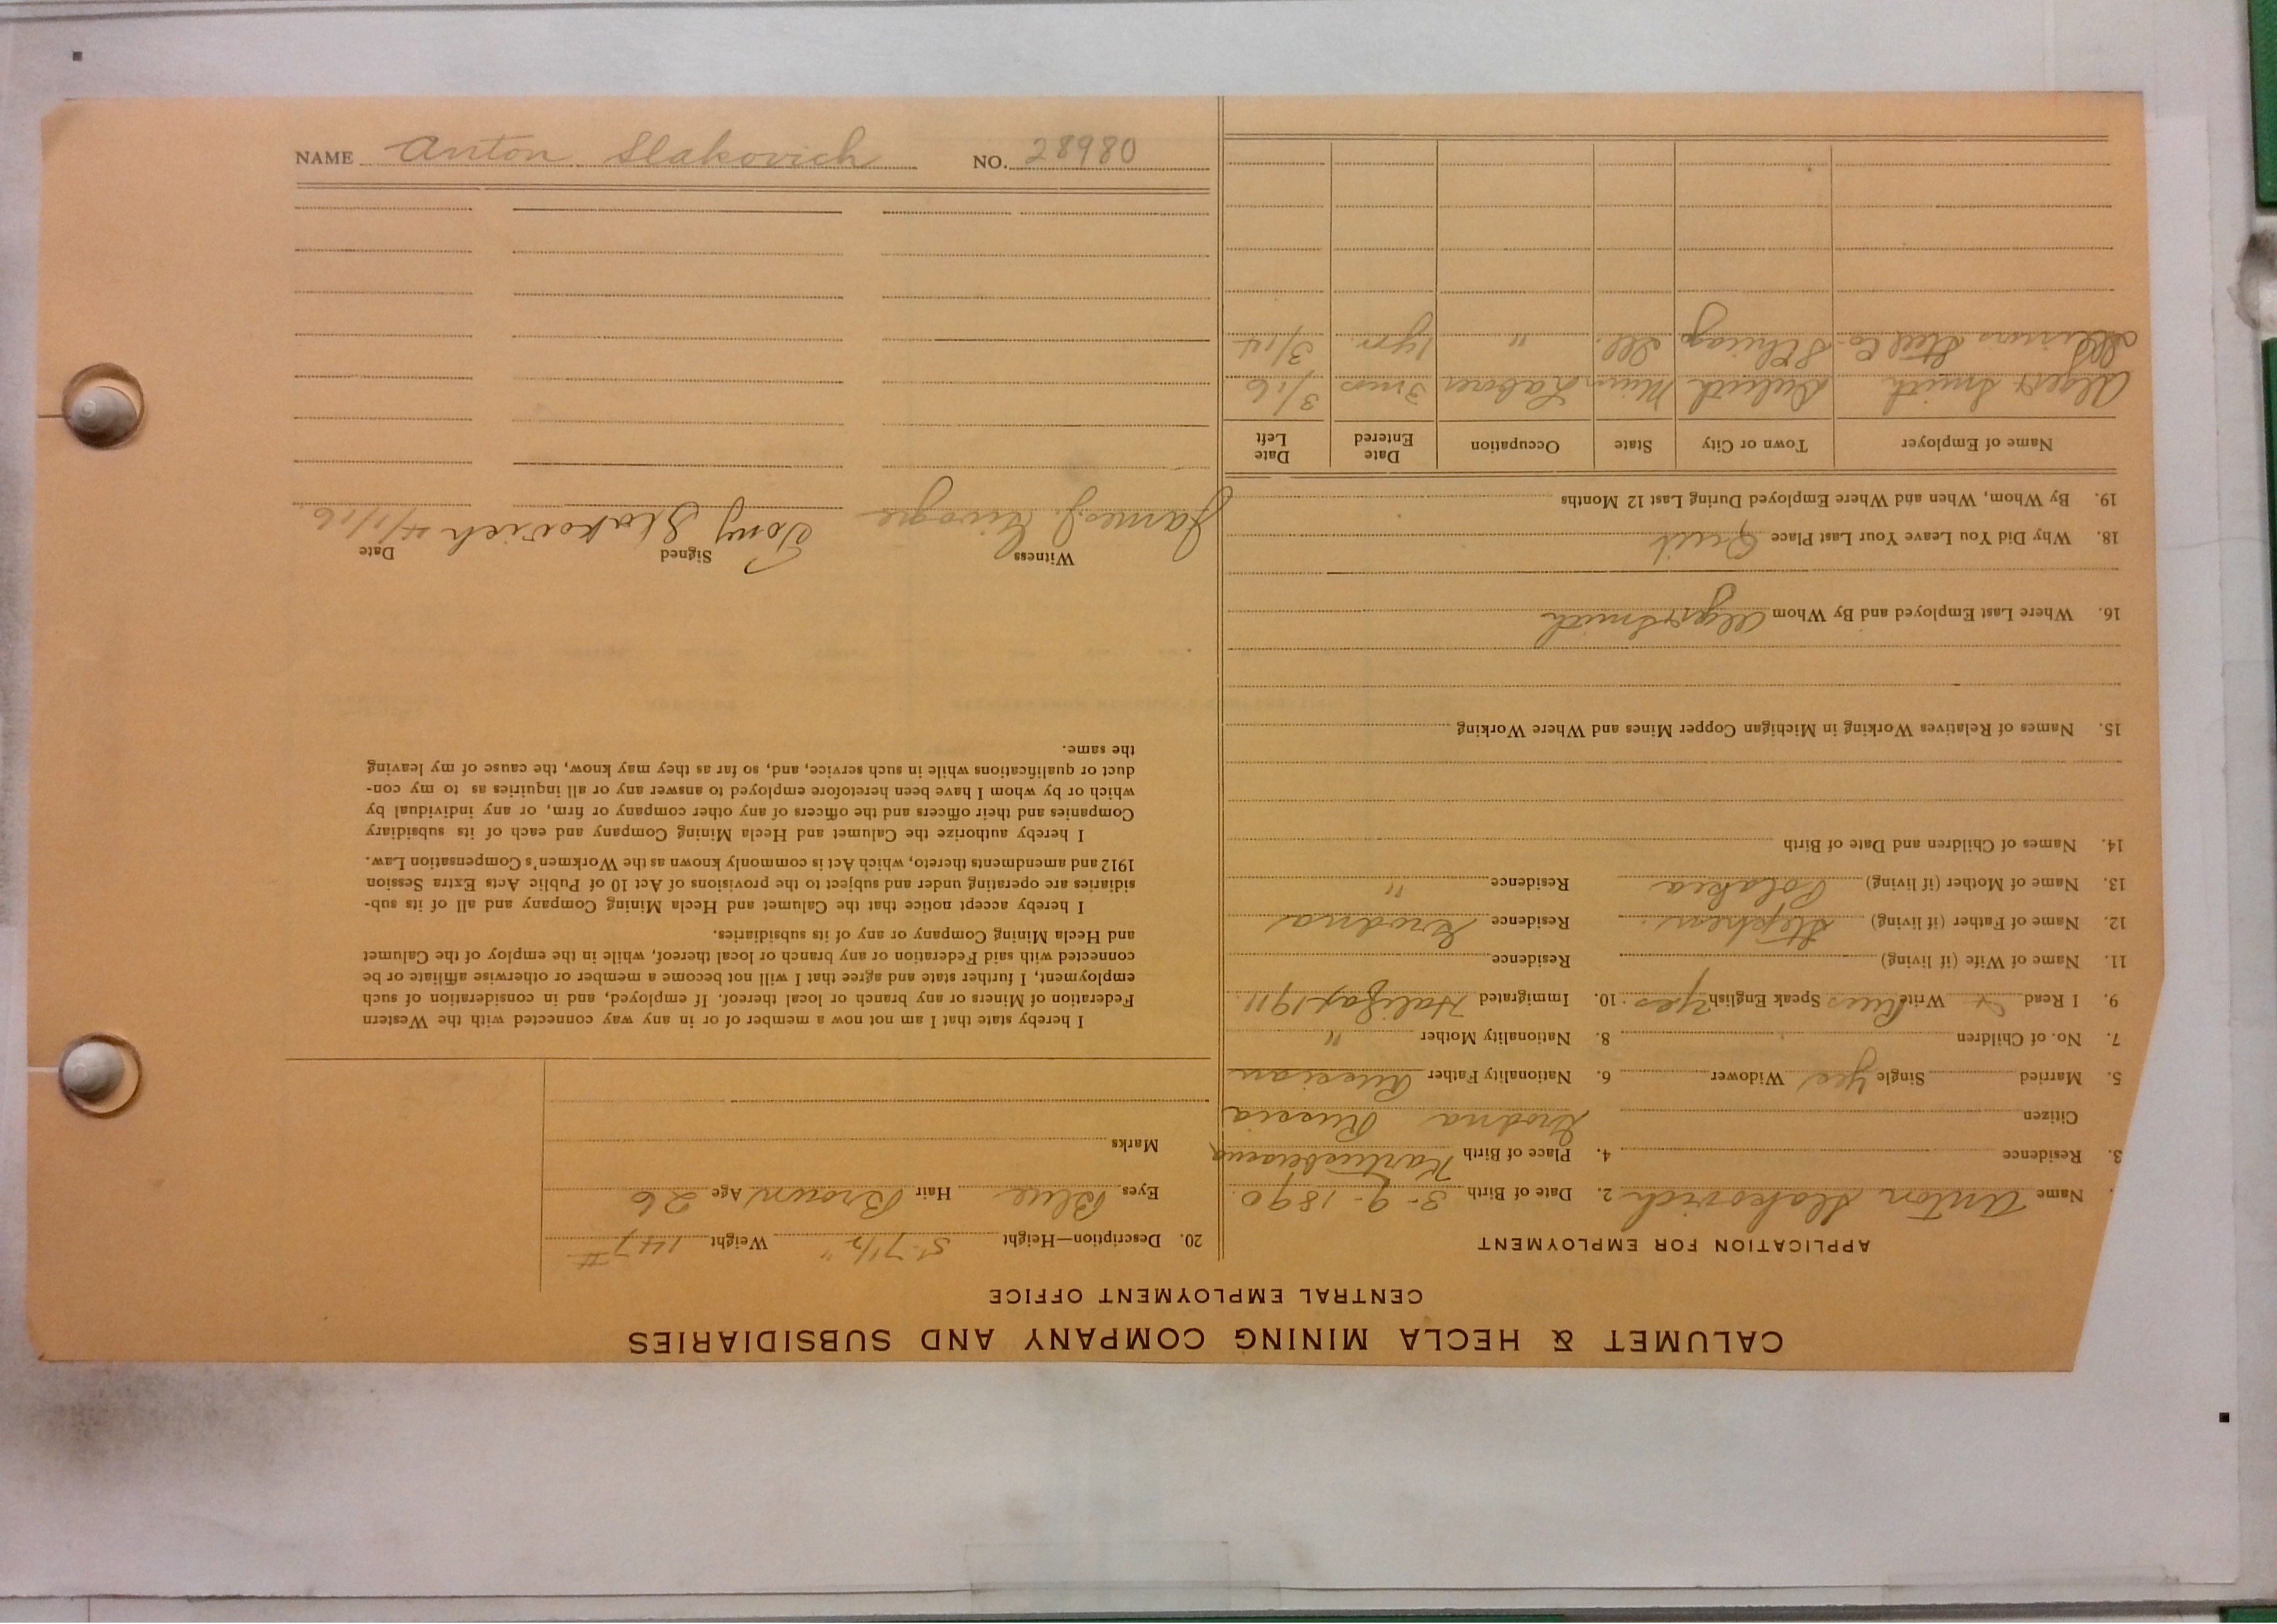 CALUMET & HECLA MINING COMPANY AND SUBSIDIARIES
CENTRAL EMPLOYMENT OFFICE
APPLICATION FOR EMPLOYMENT
Name Anton Slakovich 2. Date of Birth 3-9-1890
3. Residence 4. Place of Birth
Citizen Grodna Russia
5. Married Single Yes Widower 6. Nationality Father Russian
7. No. of Children 8. Nationality Mother "
9. I Read & Write Russ Speak English Yes 10. Immigrated Halifax 1911
11. Name of Wife (if living) Residence
12. Name of Father (if living) Stephen Residence Grodna
13. Name of Mother (if living) Polakia Residence "
14. Names of Children and Date of Birth
15. Names of Relatives Working in Michigan Copper Mines and Where Working
16. Where Last Employed and By Whom Alger Smith
18. Why Did You Leave Your Last Place Quit
19. By Whom, When and Where Employed During Last 12 Months
Name of Employer Town or City State Occupation Date Entered Date Left
Alger Smith Duluth Minn Laborer 3 mos 3/16
Illinois Steel Co. S Chicago Ill. " 1 yr. 3/14
20. Description—Height 5' 7 1/2" Weight 147 #
Eyes Blue Hair Brown Age 26
Marks
I hereby state that I am not now a member of or in any way connected with the Western
Federation of Miners or any branch or local thereof. If employed, and in consideration of such
employment, I further state and agree that I will not become a member or otherwise affiliate or be
connected with said Federation or any branch or local thereof, while in the employ of the Calumet
and Hecla Mining Company or any of its subsidiaries.
I hereby accept notice that the Calumet and Hecla Mining Company and all of its sub-
sidiaries are operating under and subject to the provisions of Act 10 of Public Acts Extra Session
1912 and amendments thereto, which Act is commonly known as the Workmen's Compensation Law.
I hereby authorize the Calumet and Hecla Mining Company and each of its subsidiary
Companies and their officers and the officers of any other company or firm, or any individual by
which or by whom I have been heretofore employed to answer any or all inquiries as to my con-
duct or qualifications while in such service, and, so far as they may know, the cause of my leaving
the same.
Witness Signed Date
James J. Tony Slakovich 4/1/16
NAME Anton Slakovich NO. 28980